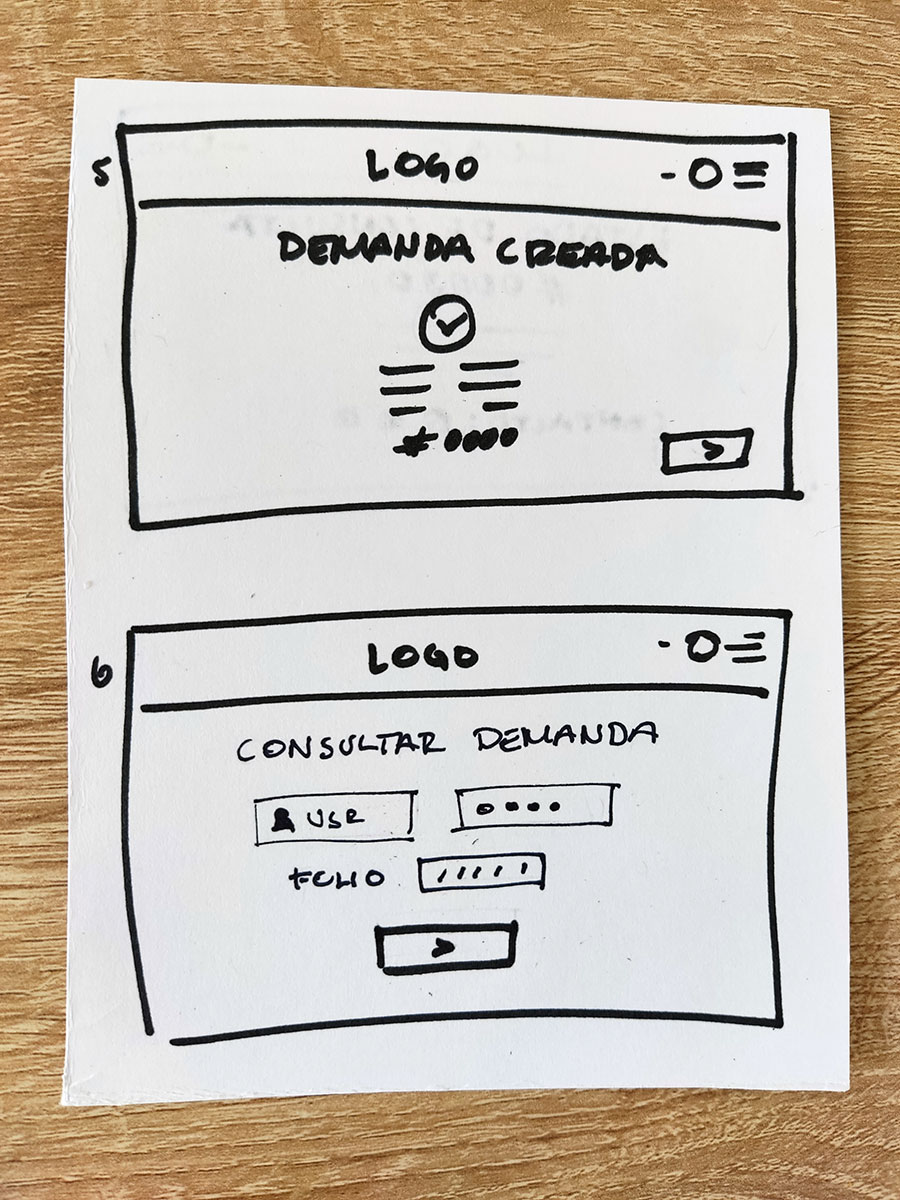 5
LOGO
DEMANDA CREADA
# 0000
6
LOGO
CONSULTAR DEMANDA
USR
FOLIO